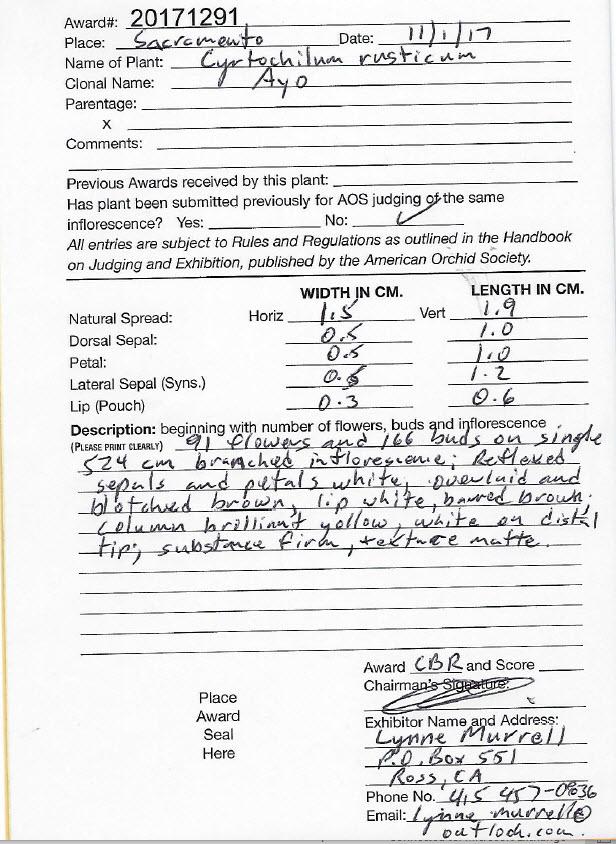 Award#: 20171291
Place: Sacramento Date: 11/1/17
Name of Plant: Cyrtochilum rusticum
Clonal Name: Ayo
Parentage:
X
Comments:
Previous Awards received by this plant:
Has plant been submitted previously for AOS judging of the same
inflorescence? Yes: No: ✓
All entries are subject to Rules and Regulations as outlined in the Handbook
on Judging and Exhibition, published by the American Orchid Society.
WIDTH IN CM. LENGTH IN CM.
Natural Spread: Horiz 1.5 Vert 1.9
Dorsal Sepal: 0.5 1.0
Petal: 0.5 1.0
Lateral Sepal (Syns.) 0.5 1.2
Lip (Pouch) 0.3 0.6
Description: beginning with number of flowers, buds and inflorescence
(PLEASE PRINT CLEARLY) 91 flowers and 166 buds on single
524 cm branched inflorescence; Reflexed
sepals and petals white, overlaid and
blotched brown, lip white, barred brown.
Column brilliant yellow, white on distal
tip; substance firm, texture matte.
Award CBR and Score
Chairman's Signature:
Place
Award
Seal
Here
Exhibitor Name and Address:
Lynne Murrell
P.O. Box 551
Ross, CA
Phone No. 415 457-0636
Email: lynne murrell@
outlook.com.